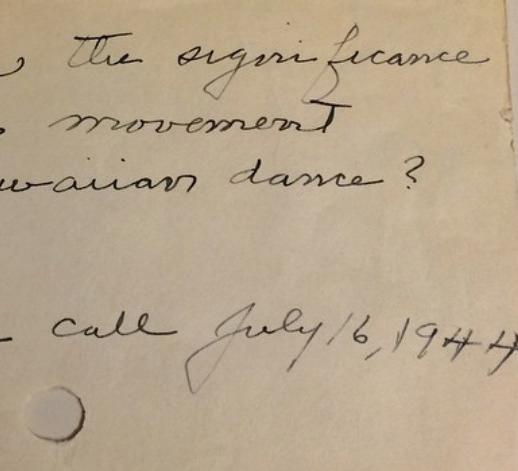 the significance
movement
waiian dance?
call July 16, 1944